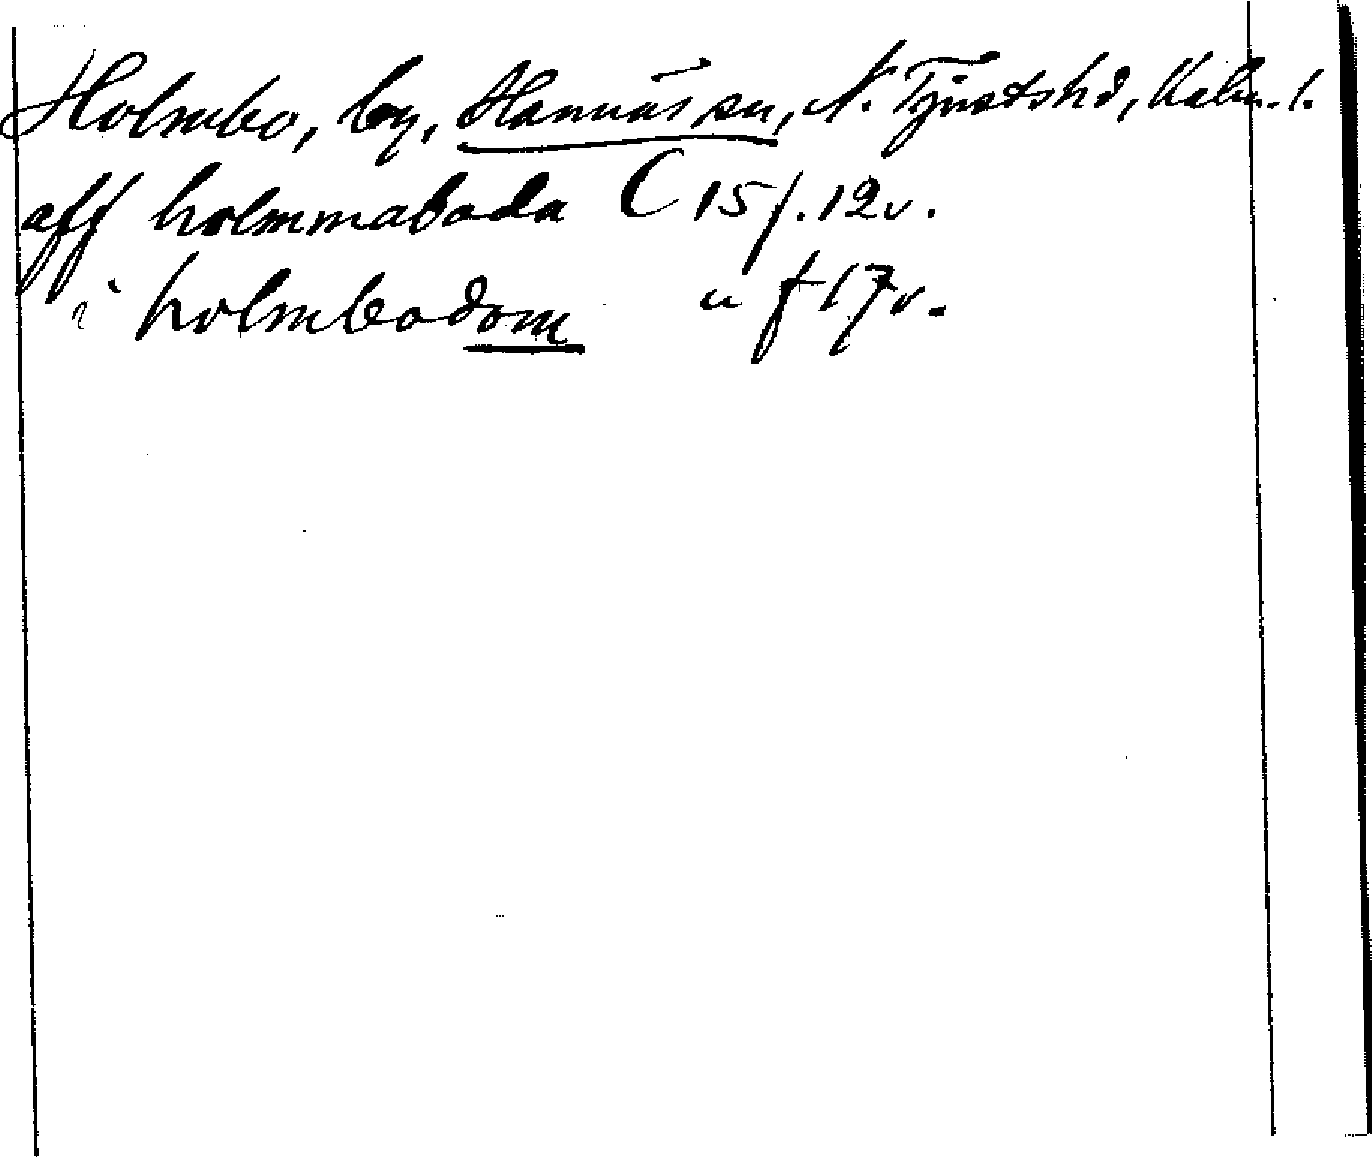 Holmbo, by, Hannäs sn, N. Tjustshd, Kalm. l.
aff holmmaboda C 15 f. 12 v.
i holmbodom " f 17 v.